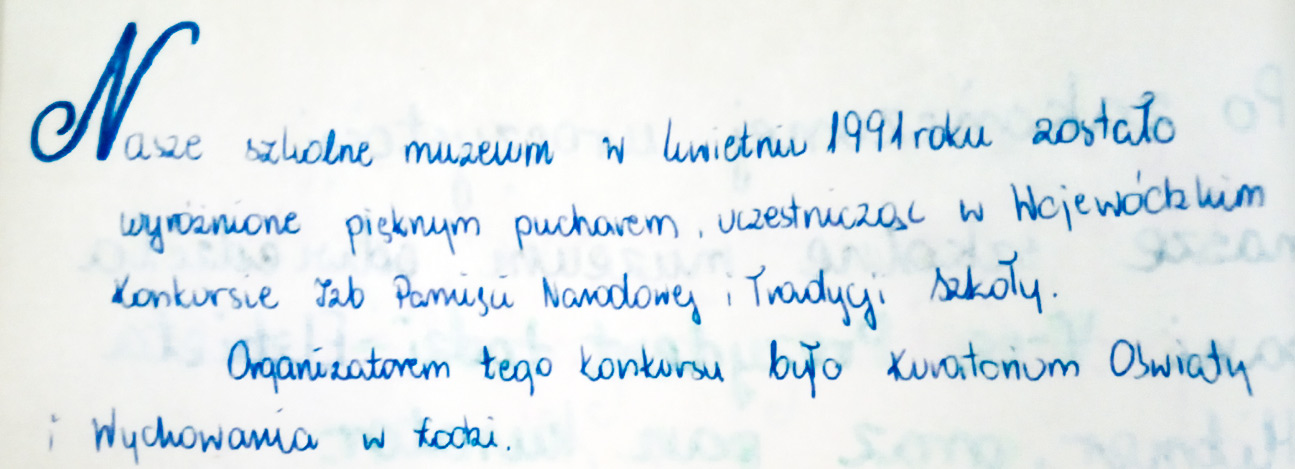 Nasze szkolne muzeum w kwietniu 1991 roku zostało
wyróżnione pięknym pucharem, uczestnicząc w Wojewódzkim
Konkursie Izb Pamięci Narodowej i Tradycji Szkoły.
Organizatorem tego konkursu było Kuratorium Oświaty
i Wychowania w Łodzi.